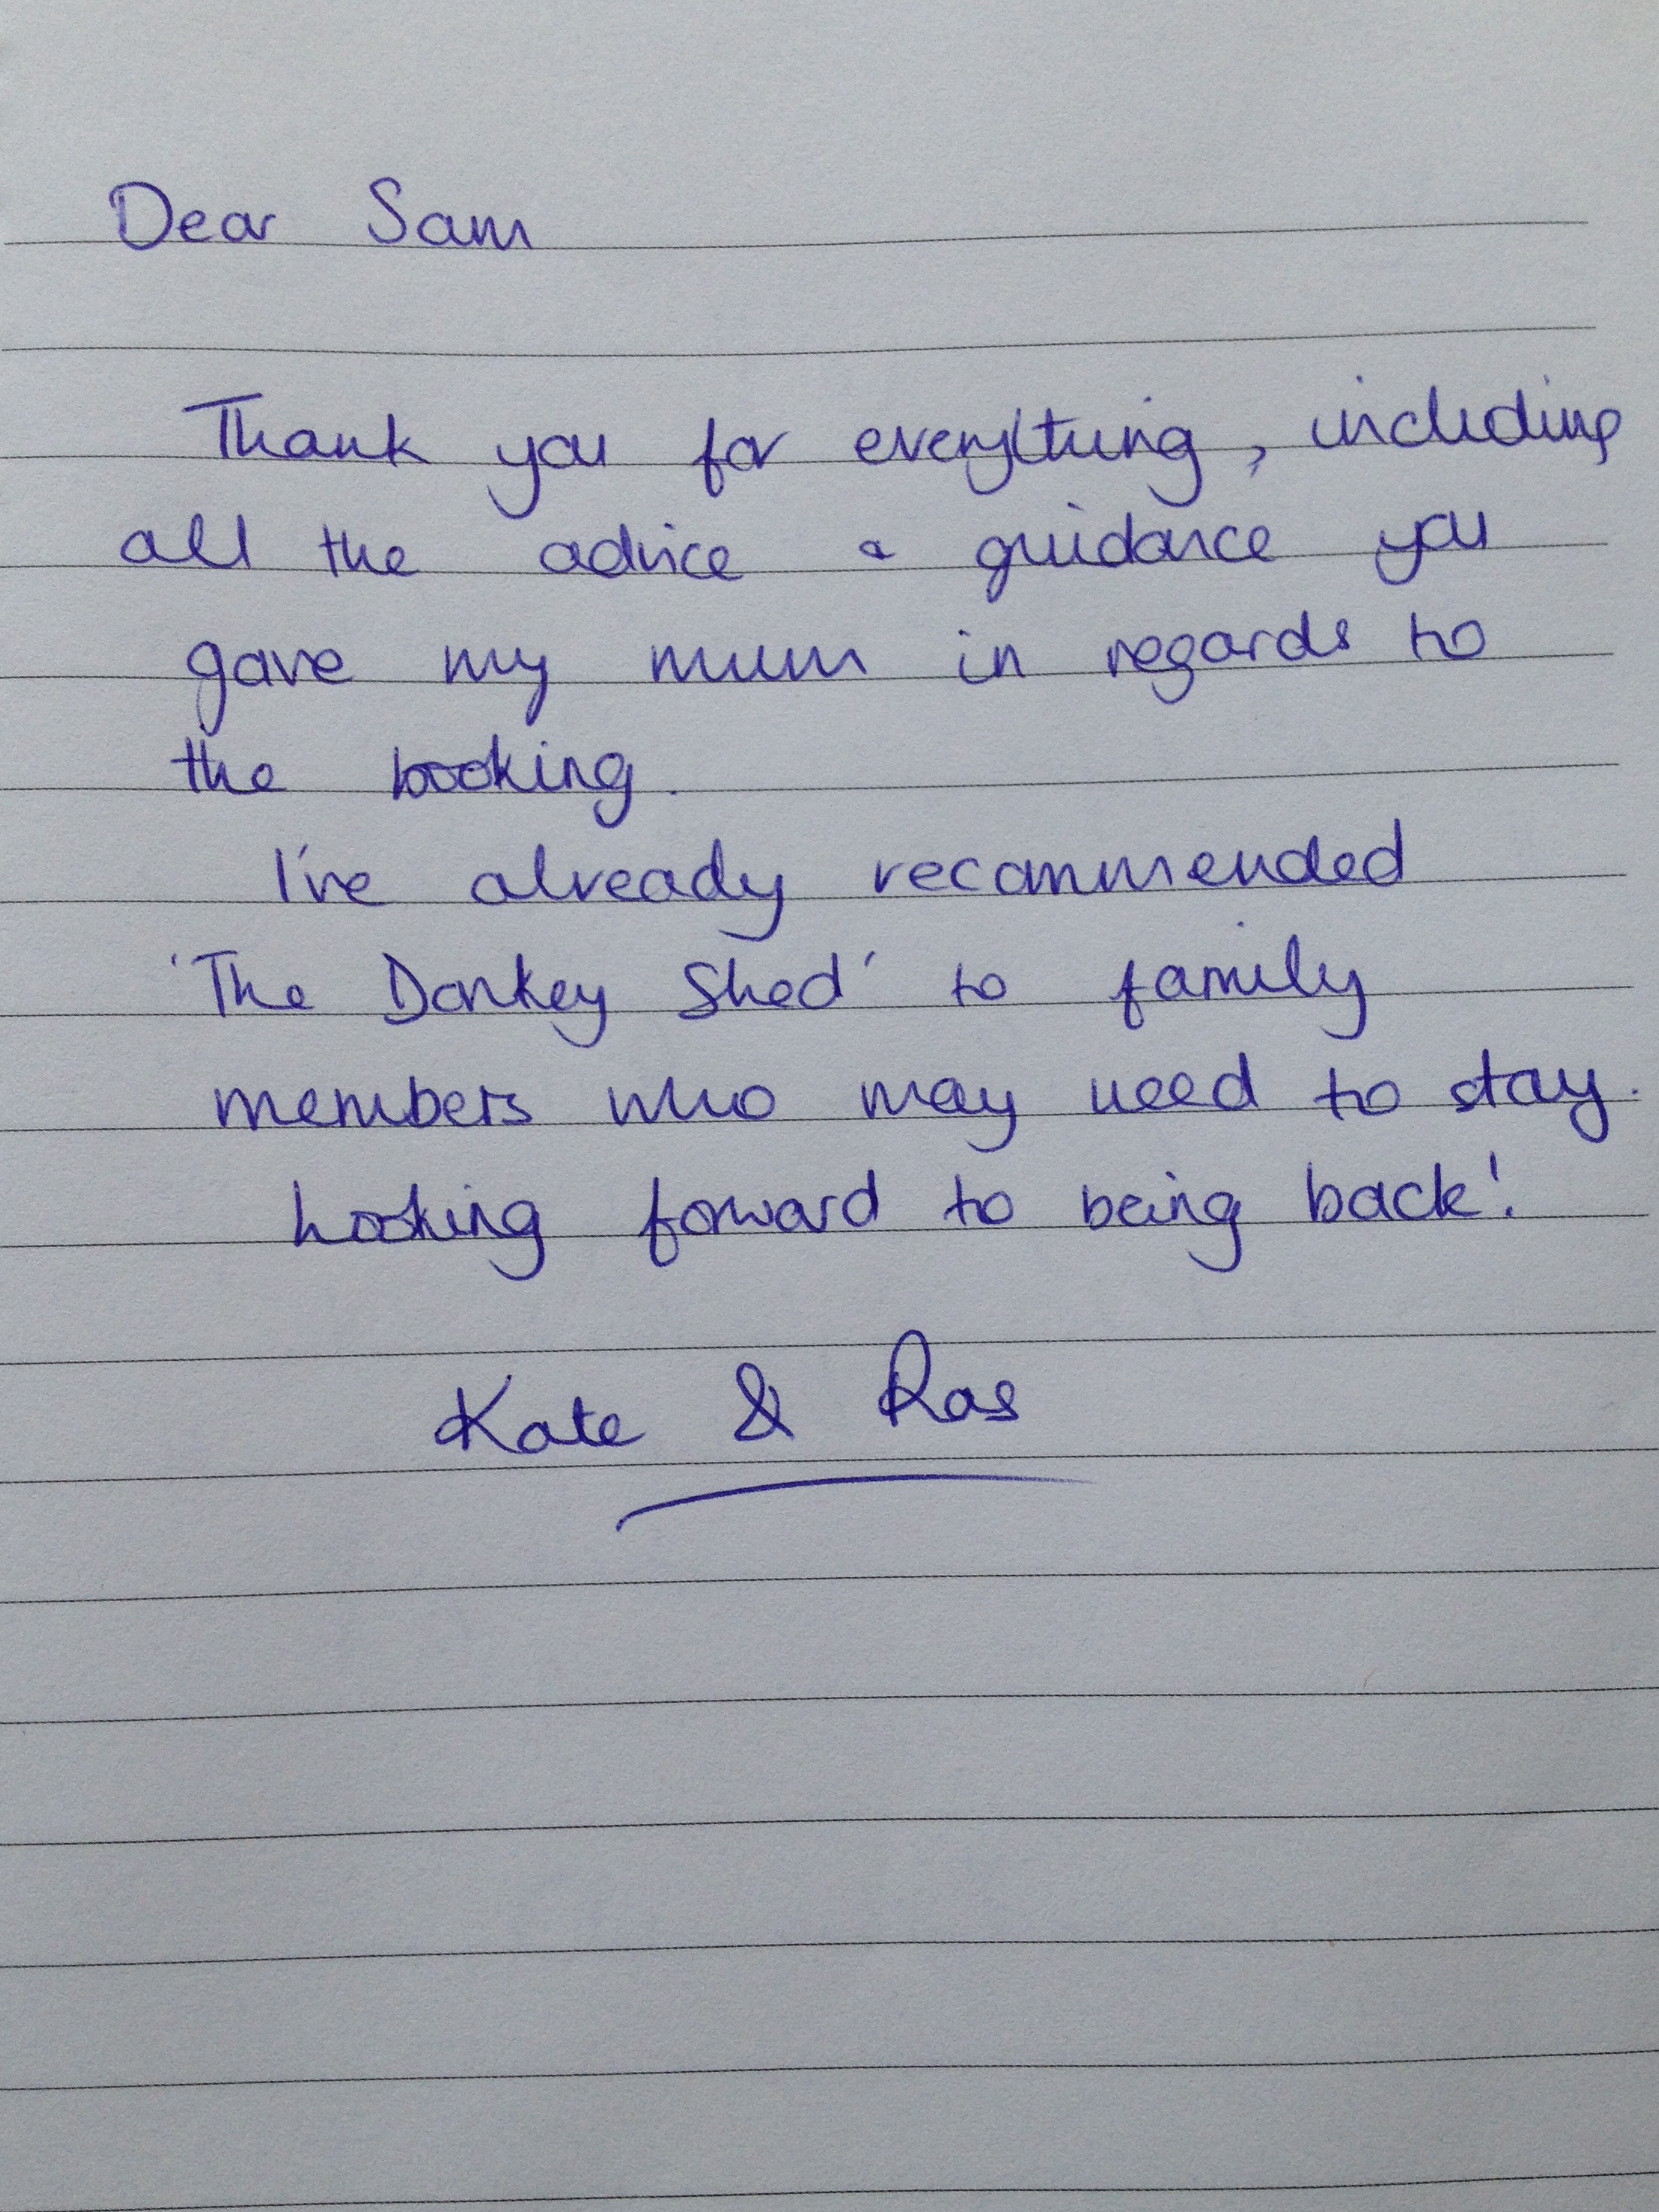 Dear Sam
Thank you for everything, including
all the advice & guidance you
gave my mum in regards to
the booking.
I've already recommended
'The Donkey Shed' to family
members who may need to stay.
Looking forward to being back!
Kate & Ras